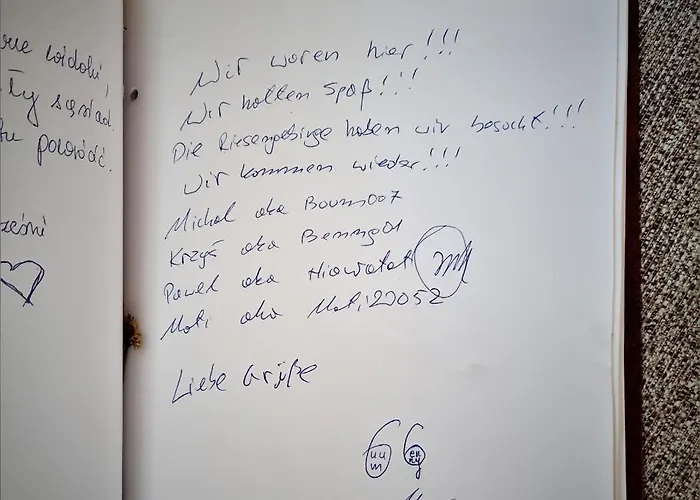 widoki
sąsiad.
powrócić.
Wir waren hier!!!
Wir hatten Spaß!!!
Die Riesengebirge haben wir besucht!!!
Wir kommen wieder!!!
Michał aka Boum007
Krzyś aka Benny01
Paweł aka Hiawatat
Mati aka Mati22052
Liebe Grüße